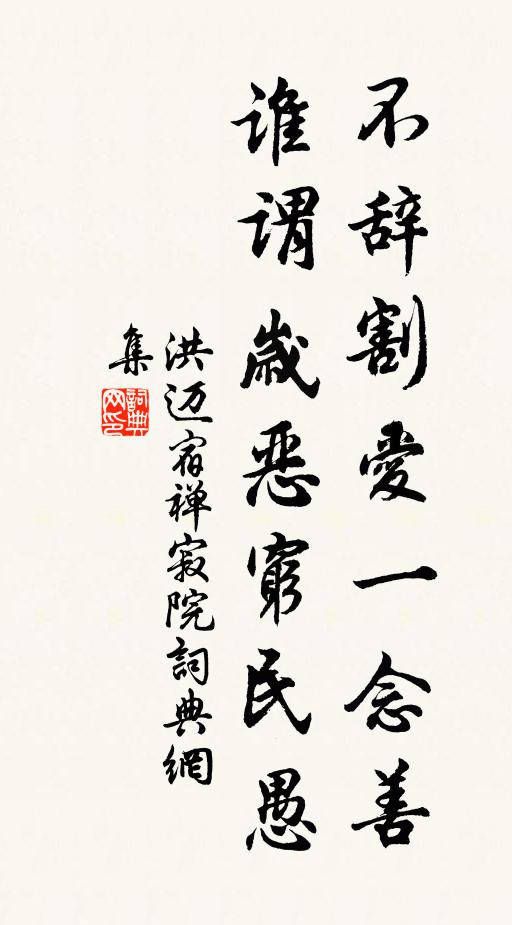 不辞割愛一念善
谁谓歲恶窮民愚
洪迈宿禅寂院詞典網
集
詞典网印